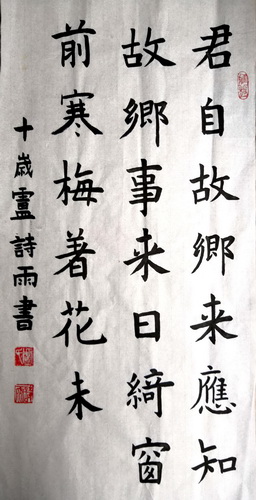 君自故鄉来應知
故鄉事来日綺窗
前寒梅着花未
十歲盧詩雨書